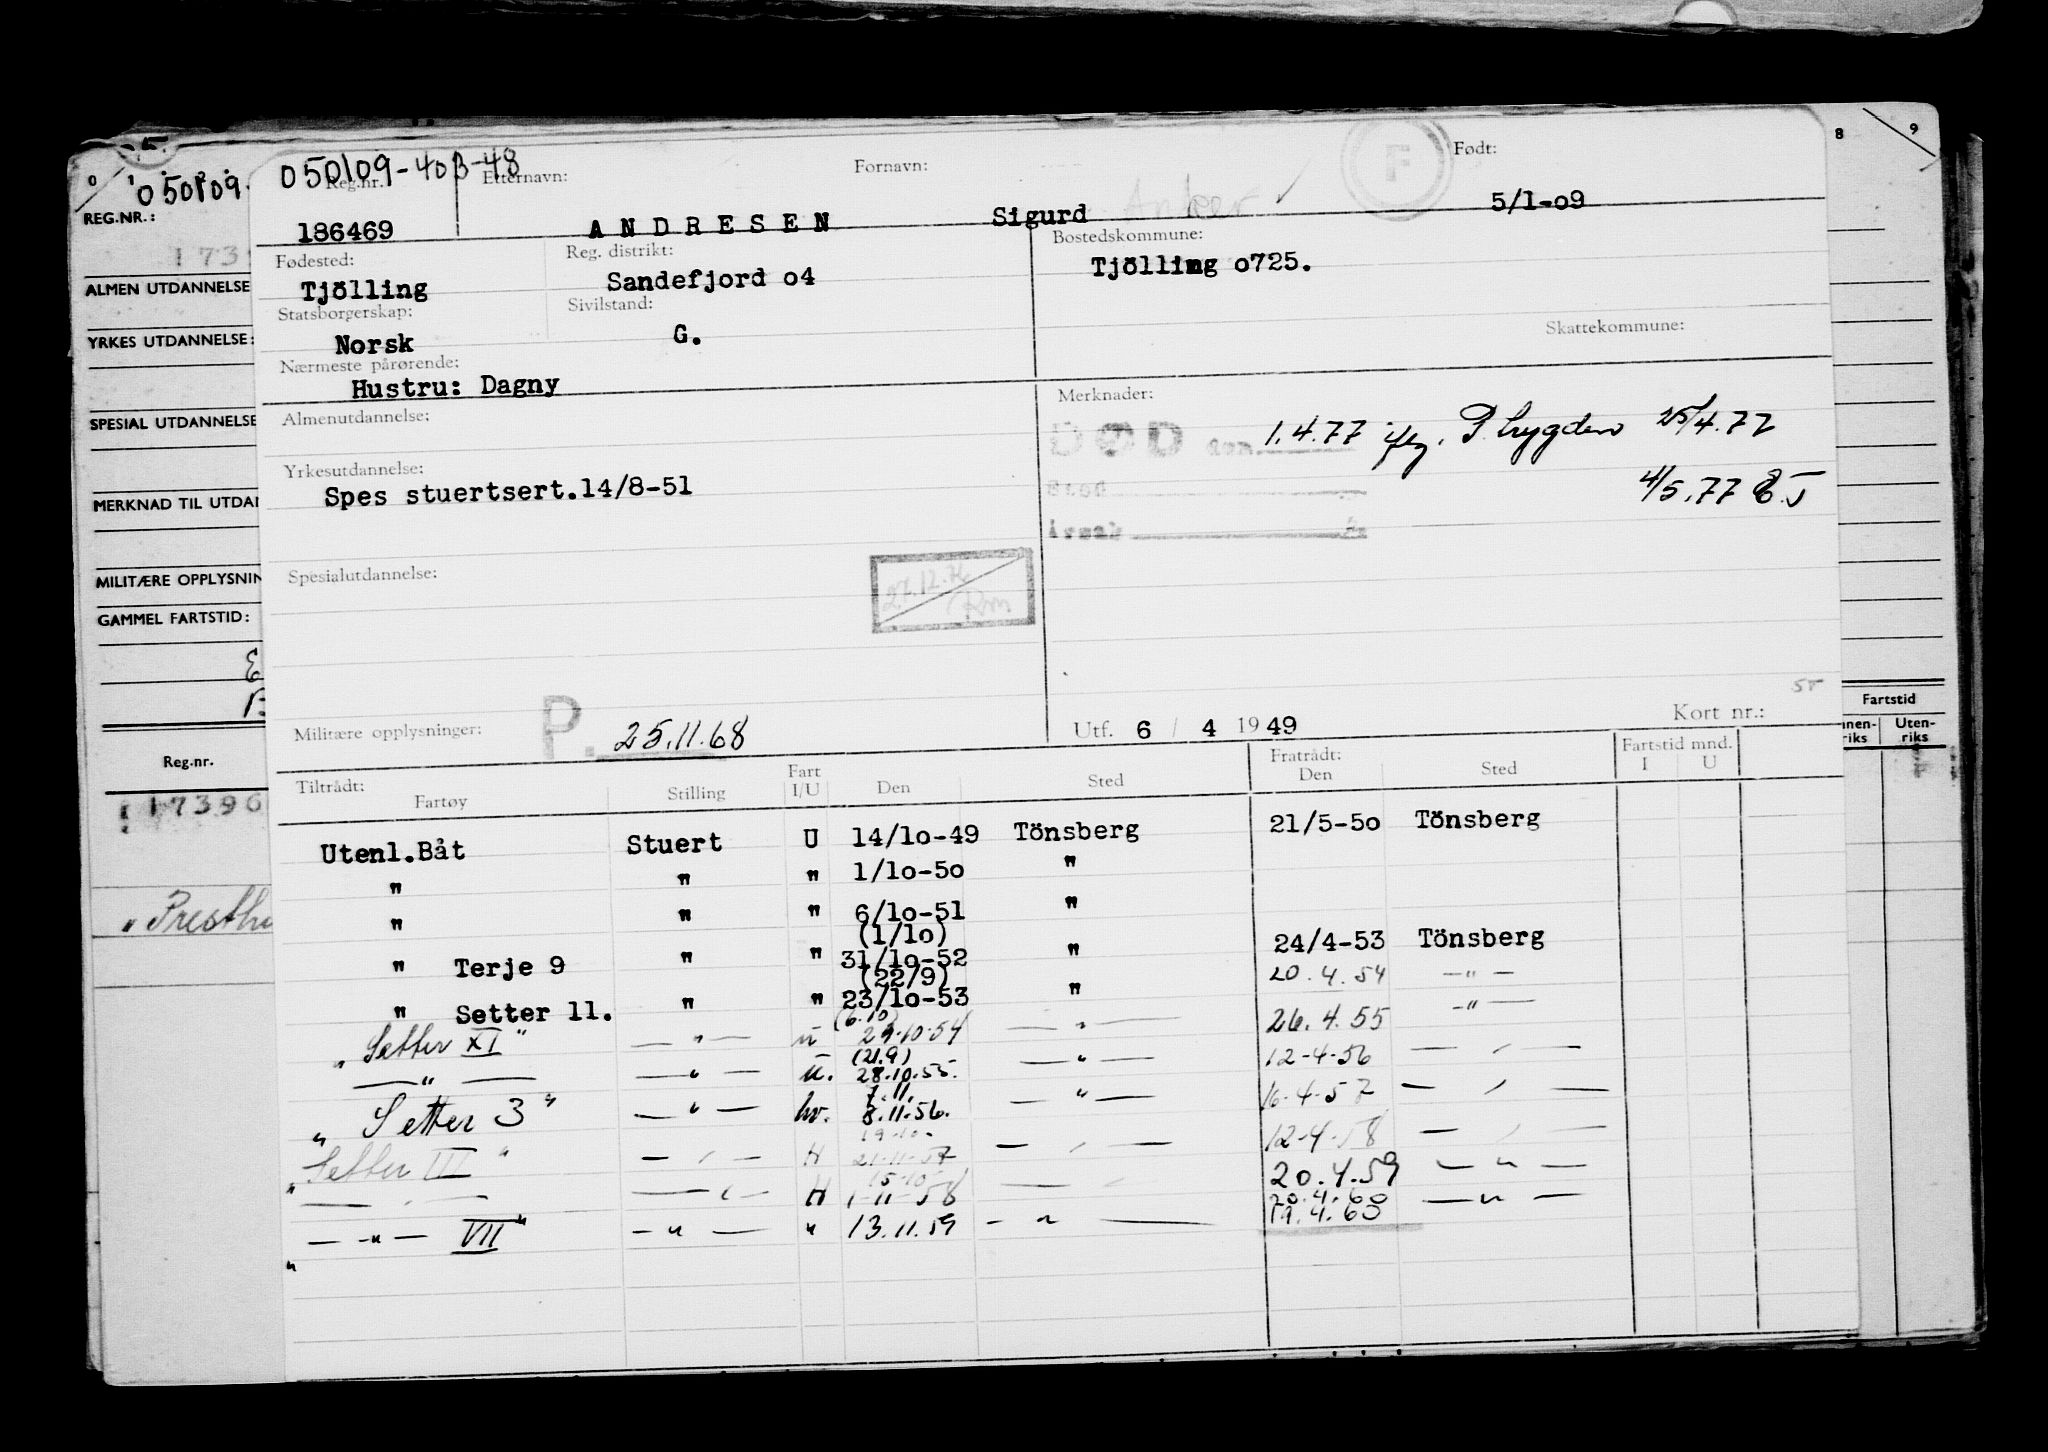 0 1 2
050109.
REG.NR.:
1739
ALMEN UTDANNELSE
YRKES UTDANNELSE:
SPESIAL UTDANNELSE
MERKNAD TIL UTDAN
MILITÆRE OPPLYSNIN
GAMMEL FARTSTID:
Reg.nr.
17396
" Presth
8 9
Fartstid
nnen-riks Uten-riks
050109-40β-48
Reg.nr. Etternavn: Fornavn: Født:
186469 ANDRESEN Sigurd Anker ✓ F 5/1-09
Fødested: Reg. distrikt: Bostedskommune:
Tjölling Sandefjord o4 Tjölling o725.
Statsborgerskap: Sivilstand: Skattekommune:
Norsk G.
Nærmeste pårørende: Merknader:
Hustru: Dagny
Almenutdannelse:
DØD den 1.4.77 jfg. P.trygden 25/4.77
Yrkesutdannelse:
Spes stuertsert.14/8-51
Sted 4/5.77
Årsak
Spesialutdannelse:
27.12.76
Militære opplysninger: P. 25.11.68
Utf. 6 / 4 1949 Kort nr.:
Tiltrådt: Fartøy Stilling Fart I/U Den Sted Fratrådt: Den Sted Fartstid mnd. I U
Utenl.Båt Stuert U 14/1o-49 Tönsberg 21/5-5o Tönsberg
" " " 1/1o-5o "
" " " 6/1o-51 "
(1/1o)
" Terje 9 " " 31/1o-52 " 24/4-53 Tönsberg
(22/9)
" Setter 11. " " 23/1o-53 " 20.4.54 —"—
(6.10)
" Setter XI " —"— u 29.10.54 —"— 26.4.55 —"—
(21.9)
—"— —"— u. 28.10.55. —"— 12-4-56 —"—
7.11.
" Setter 3 " —"— hv. 8.11.56. —"— 16-4-57 —"—
19-10-
" Setter III " —"— H 21-11-57 —"— 12-4-58 —"—
15-10-
—"— —"— H 1-11-58 —"— 20.4.59 —"—
20.4.60
" —"— VII " —"— " 13.11.59 —"— 19.4.60 —"—